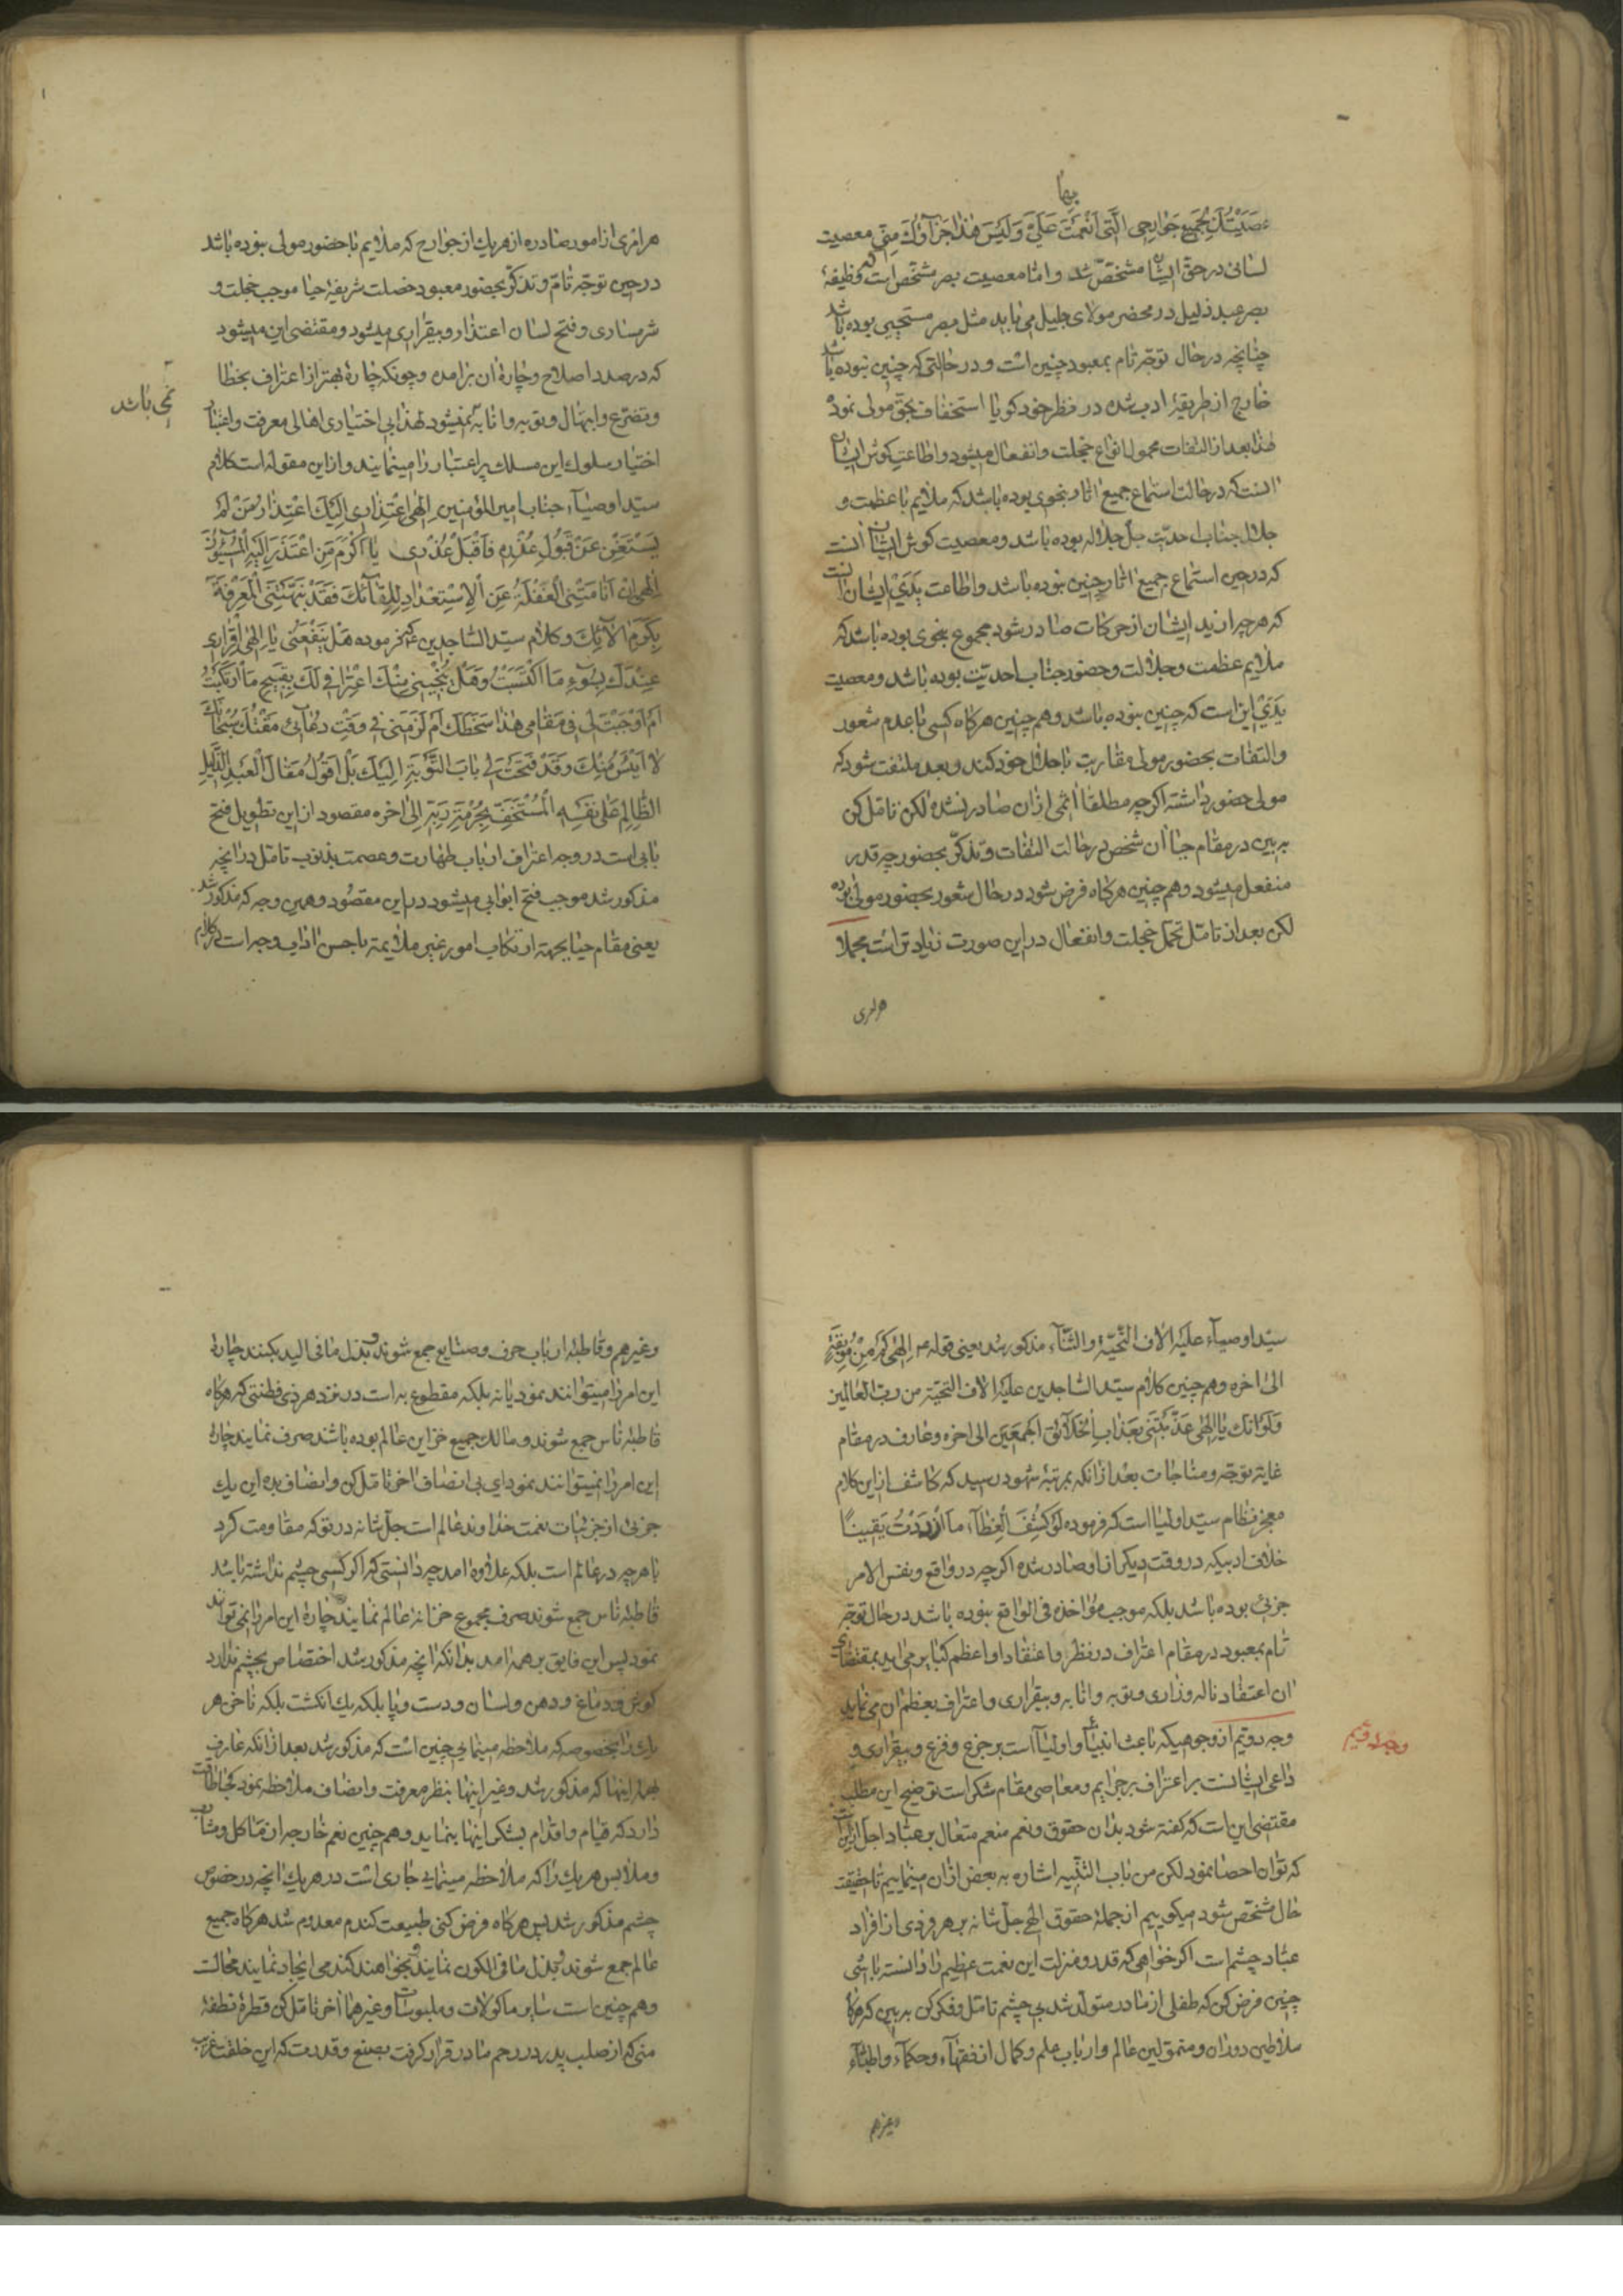 بها
عصیتك بجمیع جوارحی الّتی انعمت علیّ ولیس هذا جزآؤك منّی معصیت
لسانی در حق ایشان مشخّص شد و امّا معصیت بصر مشخّص است که وظیفهٔ
بصر عبد ذلیل در محضر مولای جلیل می باید مثل بصر مستحیی بوده باشد
چنانچه در حال توجّه تام بمعبود چنین است و در حالتی که چنین نبوده باشد
خارج از طریقهٔ ادب شده در نظر خود کویا استخفاف بحق مولی نموده
لهذا بعد از التفات محمول انواع خجلت و انفعال میشود و اطاعت کوش ایشان
انست که در حالت استماع جمیع اثار بنحوی بوده باشد که ملایم با عظمت و
جلال جناب احدیّت جلّ جلاله بوده باشد و معصیت کوش ایشان انست
که در حین استماع جمیع اثار چنین نبوده باشد و اطاعت یدی ایشان انست
که هر چه از ید ایشان از حرکات صادر شود مجموع بنحوی بوده باشد که
ملایم عظمت و جلالت و حضور جناب احدیّت بوده باشد و معصیت
یدی این است که چنین نبوده باشد و هم چنین هرکاه کسی با عدم شعور
و التفات بحضور مولی مقاربت با حلال خود کند و بعد ملتفت شود که
مولی حضور داشته اکرچه مطلقا اثمی از ان صادر نشده لکن تامل کن
به بین در مقام حیا ان شخص در حالت التفات و تذکّر بحضور چه قدر
منفعل میشود و هم چنین هرکاه فرض شود در حال شعور بحضور مولی بوده
لکن بعد از تامّل تحمّل خجلت و انفعال در این صورت زیادتر است مجملا
هر امری
هر امری از امور صادره از هر یك از جوارح که ملایم با حضور مولی نبوده باشد
در حین توجّه تامّ و تذکّر بحضور معبود خصلت شریفهٔ حیا موجب خجلت و
شرمساری و فتح لسان اعتذار و بیقراری میشود و مقتضی این میشود
که در صدد اصلاح و چارهٔ ان برامده و چونکه چارهٔ بهتر از اعتراف بخطا
و تضرّع و ابتهال و توبه و انابه نمیشود لهذا بی اختیاری اهالی معرفت و
نمی باشد
اختیار سلوك این مسلك پر اعتبار را مینمایند و از این مقوله است کلام
سیّد اوصیآء جناب امیر المؤمنین الهی اعتذاری الیك اعتذار من لم
یستغن عن قبول عذره فاقبل عذری یا اکرم من اعتذر الیه المسیئون
الهی ان انامتنی الغفلة عن الاستعداد للقآئك فقد نبّهتنی المعرفة
بکرم الآئك و کلام سیّد الساجدین فرموده هل ینفعنی یا الهی اقراری
عندك بسوء ما اکتسبت و هل ینجینی منك اعترافی لك بقبیح ما ارتکبت
ام اوجبت لی فی مقامی هذا سخطك ام لزمنی فی وقت دعآئی مقتك سبحانك
لا ایئس منك و قد فتحت لی باب التّوبة الیك بل اقول مقال العبد الذّلیل
الظّالم علی نفسه المستخفّ بحرمة ربّه الی اخره مقصود از این تطویل فتح
بابی است در وجه اعتراف ارباب طهارت و عصمت بذنوب تامّل در انچه
مذکور شد موجب فتح ابوابی میشود در این مقصود و همین وجه که مذکور شد
یعنی مقام حیا بجهة ارتکاب امور غیر ملایمه با حسن اداب وجه است در کلام
سیّد اوصیآء علیه الاف التّحیّة والثّنآء مذکور شد یعنی قوله الهی کم من موبقة
الی اخره و هم چنین کلام سیّد الساجدین علیه الاف التحیّة من ربّ العالمین
ولو انك یا الهی عذّبتنی بعذاب الخلآئق اجمعین الی اخره و عارف در مقام
غایت توجّه و مناجات بعد از انکه بمرتبهٔ شهود رسید که کاشف از این کلام
معجز نظام سیّد اولیا است که فرموده لو کشف الغطآء ما ازددت یقینًا
خلاف ادبیکه در وقت دیکر از او صادر شده اکرچه در واقع و نفس الامر
جزئی بوده باشد بلکه موجب مؤاخذه فی الواقع نبوده باشد در حال توجّه
تام بمعبود در مقام اعتراف در نظر و اعتقاد او اعظم کبایر می اید بمقتضای
ان اعتقاد ناله و زاری و توبه و انابه و بیقراری و اعتراف بعظم ان می نماید
وجه دویّم از وجوهیکه باعث انبیآء و اولیآ است بر جزع و فزع و بیقراری و
وجه دویم
داعی ایشانست بر اعتراف بر جرایم و معاصی مقام شکر است توضیح این مطلب
مقتضی این است که کفته شود بدان حقوق و نعم منعم متعال بر عباد اجل از این است
که توان احصا نمود لکن من باب التنبیه اشاره به بعض از ان مینماییم تا حقیقت
حال مشخّص شود میکوییم از جملهٔ حقوق الهی جلّ شانه بر هر فردی از افراد
عباد چشم است اکر خواهی که قدر و منزلت این نعمت عظیم را دانسته باشی
چنین فرض کن که طفلی از مادر متولّد شد بی چشم تامّل و فکر کن به بین که هرکاه
سلاطین دوران و متموّلین عالم و ارباب علم و کمال از فقهآء و حکمآء و اطبّآء
وغیرهم
وغیرهم و قاطبهٔ ارباب حرف و صنایع جمع شوند و بذل ما فی الید بکنند چارهٔ
این امر را میتوانند نمود یا نه بلکه مقطوع به است در نزد هر ذی فطنتی که هرکاه
قاطبهٔ ناس جمع شوند و مالك جمیع خزاین عالم بوده باشند صرف نمایند چارهٔ
این امر را نمیتوانند نمود ای بی انصاف اخر تامّل کن و انصاف بده این یك
جزئی از جزئیات نعمت خداوند عالم است جلّ شانه در تو که مقاومت کرد
با هر چه در عالم است بلکه علاوه امد چه دانستی که اکر کسی چشم نداشته باشد
قاطبهٔ ناس جمع شوند صرف مجموع خزانهٔ عالم نمایند چارهٔ این امر را نمی توانند
نمود پس این فایق بر همه امد بدانکه انچه مذکور شد اختصاص بچشم ندارد
کوش و دماغ و دهن و لسان و دست و پا بلکه یك انکشت بلکه ناخن هر
یك را بخصوصه که ملاحظه مینمایی چنین است که مذکور شد بعد از انکه عارف
بهمهٔ اینها که مذکور شد و غیر اینها بنظر معرفت و انصاف ملاحظه نمود کجا طاقت
دارد که قیام و اقدام بشکر اینها بنماید و هم چنین نعم خارجه از مآکل و مشارب
و ملابس هر یك را که ملاحظه مینمایی جاری است در هر یك انچه در خصوص
چشم مذکور شد پس هرکاه فرض کنی طبیعت کندم معدوم شد هرکاه جمیع
عالم جمع شوند و بذل ما فی الکون نمایند و بخواهند کندمی ایجاد نمایند محالست
و هم چنین است سایر ماکولات و ملبوسات و غیرهما اخر تامّل کن قطرهٔ نطفهٔ
منی که از صلب پدر در رحم مادر قرار کرفت بصنع و قدرت که این خلقت غریب